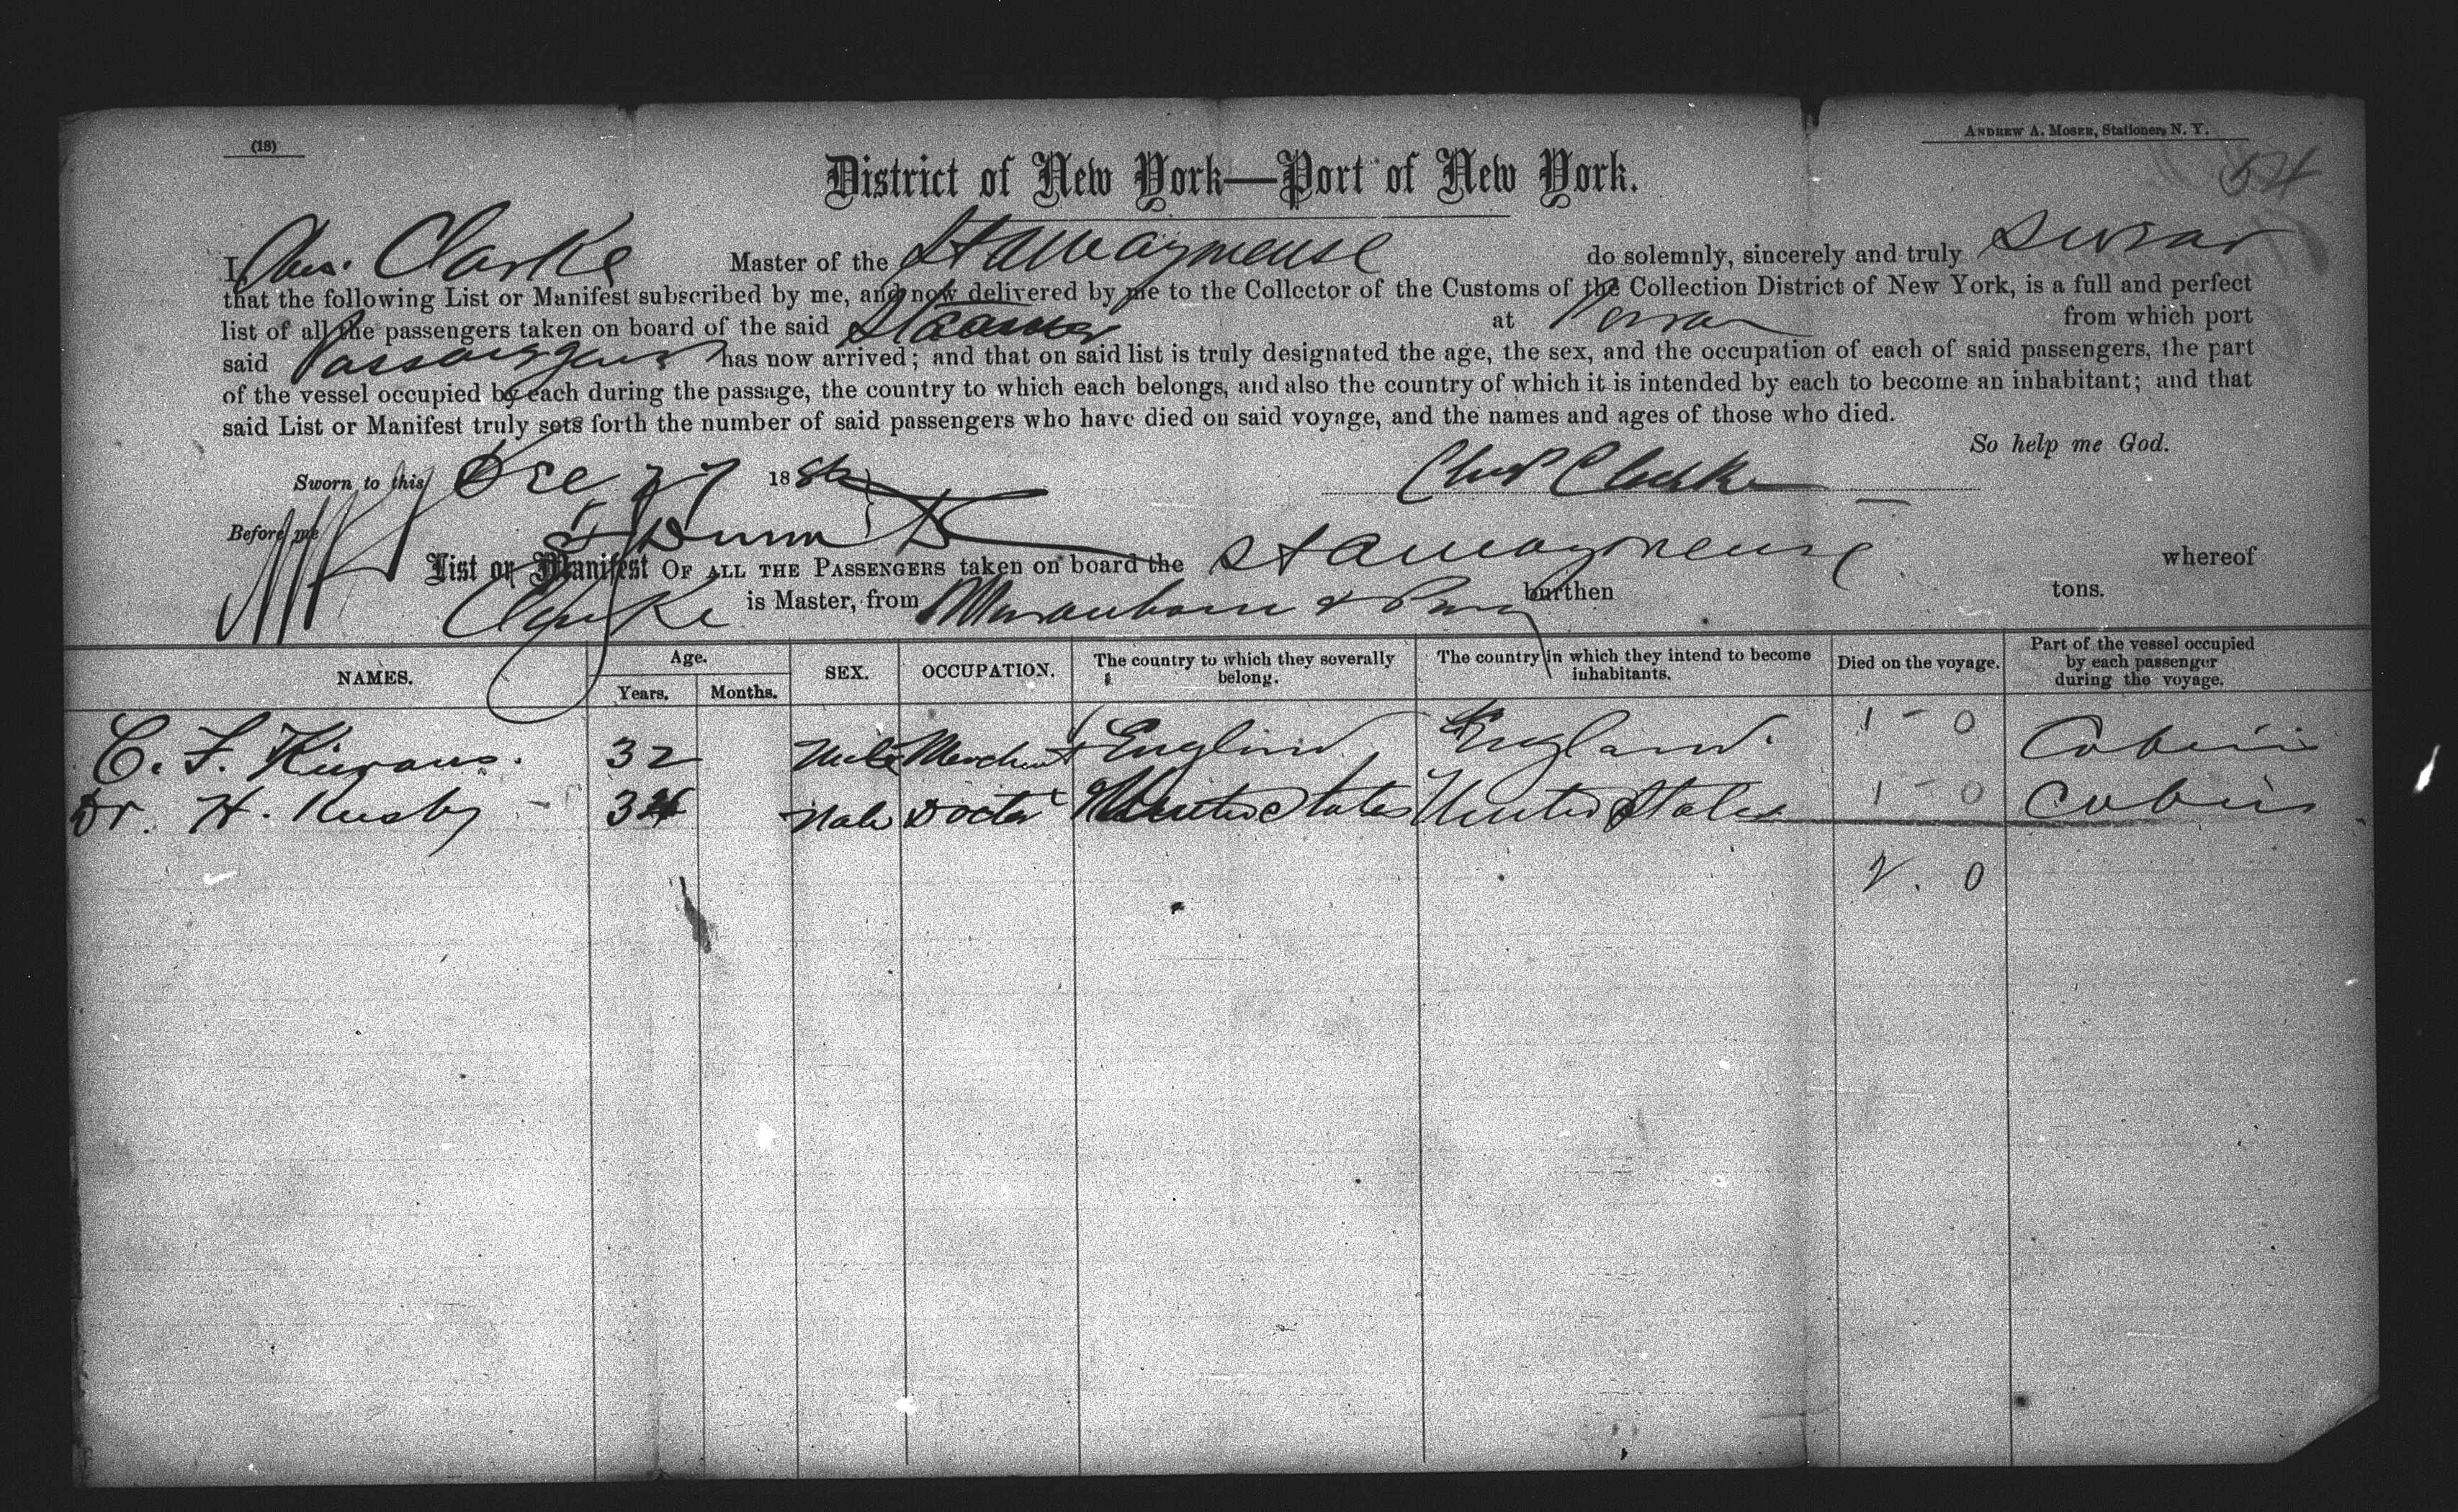 (18)
ANDREW A. MOSER, Stationer, N. Y.
54
District of New York—Port of New York.
I, Chas. Clarke Master of the do solemnly, sincerely and truly Swear
that the following List or Manifest subscribed by me, and now delivered by me to the Collector of the Customs of the Collection District of New York, is a full and perfect
list of all the passengers taken on board of the said Steamer at Para from which port
said Passengers has now arrived; and that on said list is truly designated the age, the sex, and the occupation of each of said passengers, the part
of the vessel occupied by each during the passage, the country to which each belongs, and also the country of which it is intended by each to become an inhabitant; and that
said List or Manifest truly sets forth the number of said passengers who have died on said voyage, and the names and ages of those who died.
So help me God.
Sworn to this Dec 27 1886 Chas Clarke
Before me
List or Manifest OF ALL THE PASSENGERS taken on board the whereof
Clarke is Master, from Maranham & Para burthen tons.
NAMES. Age. Years. Months. SEX. OCCUPATION. The country to which they severally belong. The country in which they intend to become inhabitants. Died on the voyage. Part of the vessel occupied by each passenger during the voyage.
C. F. 32 Male Merchant England England. 1 - 0 Cabin
Dr. H. Rusby 34 Male Doctor United States United States 1 - 0 Cabin
2. 0